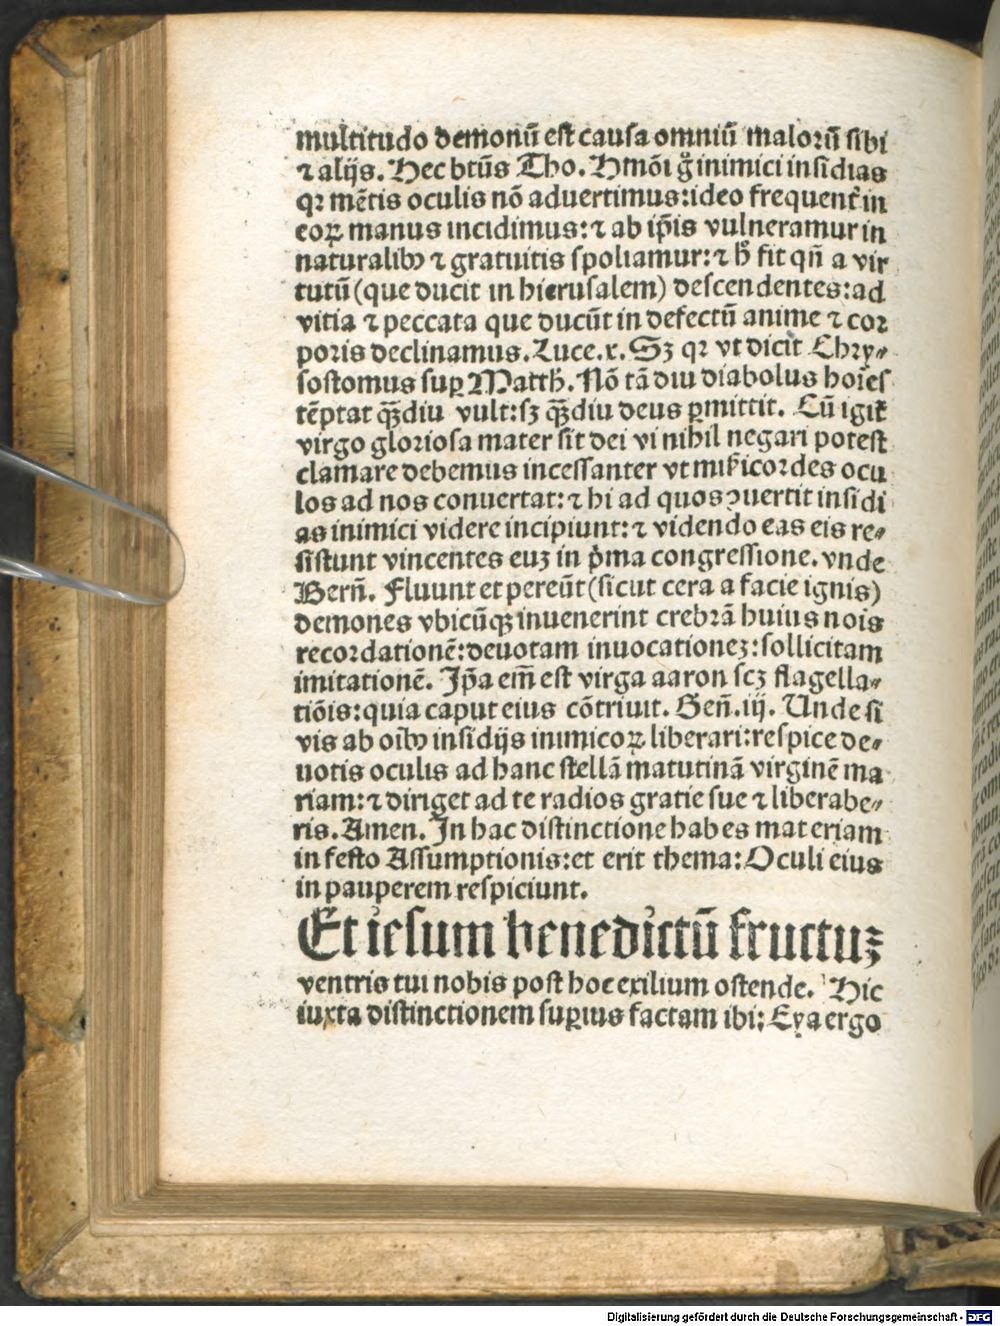 multitudo demonū est causa omniū malorū sibi
⁊ alijs. Hec btūs Tho. Hmōi g̃ inimici insidias
qꝛ mētis oculis nō aduertimus: ideo frequent̃ in
eoꝝ manus incidimus: ⁊ ab ip̄is vulneramur in
naturalibꝰ ⁊ gratuitis spoliamur: ⁊ h̃ fit qñ a vir
tutū (que ducit in hierusalem) descendentes: ad
vitia ⁊ peccata que ducūt in defectū anime ⁊ coꝛ
poꝛis declinamus. Luce.x. Sꝫ qꝛ vt dicit Chꝛy⸗
sostomus suꝑ Matth. Nō tā diu diabolus hoīes
tēptat qᷓꝫdiu vult: sꝫ qᷓꝫdiu deus ꝑmittit. Cū igit̃
virgo gloꝛiosa mater sit dei vi nihil negari potest
clamare debemus incessanter vt mīs̃icoꝛdes ocu
los ad nos conuertat: ⁊ hi ad quos ꝯuertit insidi
as inimici videre incipiunt: ⁊ videndo eas eis re⸗
sistunt vincentes euꝫ in pͥma congressione. vnde
Berñ. Fluunt et pereūt (sicut cera a facie ignis)
demones vbicūqꝫ inuenerint crebꝛā huius nois
recoꝛdationē: deuotam inuocationeꝫ: sollicitam
imitationē. Ip̄a em̄ est virga aaron scꝫ flagella⸗
tiōis: quia caput eius cōtriuit. Geñ.iij. Unde si
vis ab oībꝰ insidijs inimicoꝝ liberari: respice de⸗
uotis oculis ad hanc stellā matutinā virginē ma
riam: ⁊ diriget ad te radios gratie sue ⁊ liberabe⸗
ris. Amen. In hac distinctione habes materiam
in festo Assumptionis: et erit thema: Oculi eius
in pauperem respiciunt.
Et iesum benedictū fructuꝫ
ventris tui nobis post hoc exilium ostende. Hic
iuxta distinctionem suꝑius factam ibi: Eya ergo
Digitalisierung gefördert durch die Deutsche Forschungsgemeinschaft - DFG